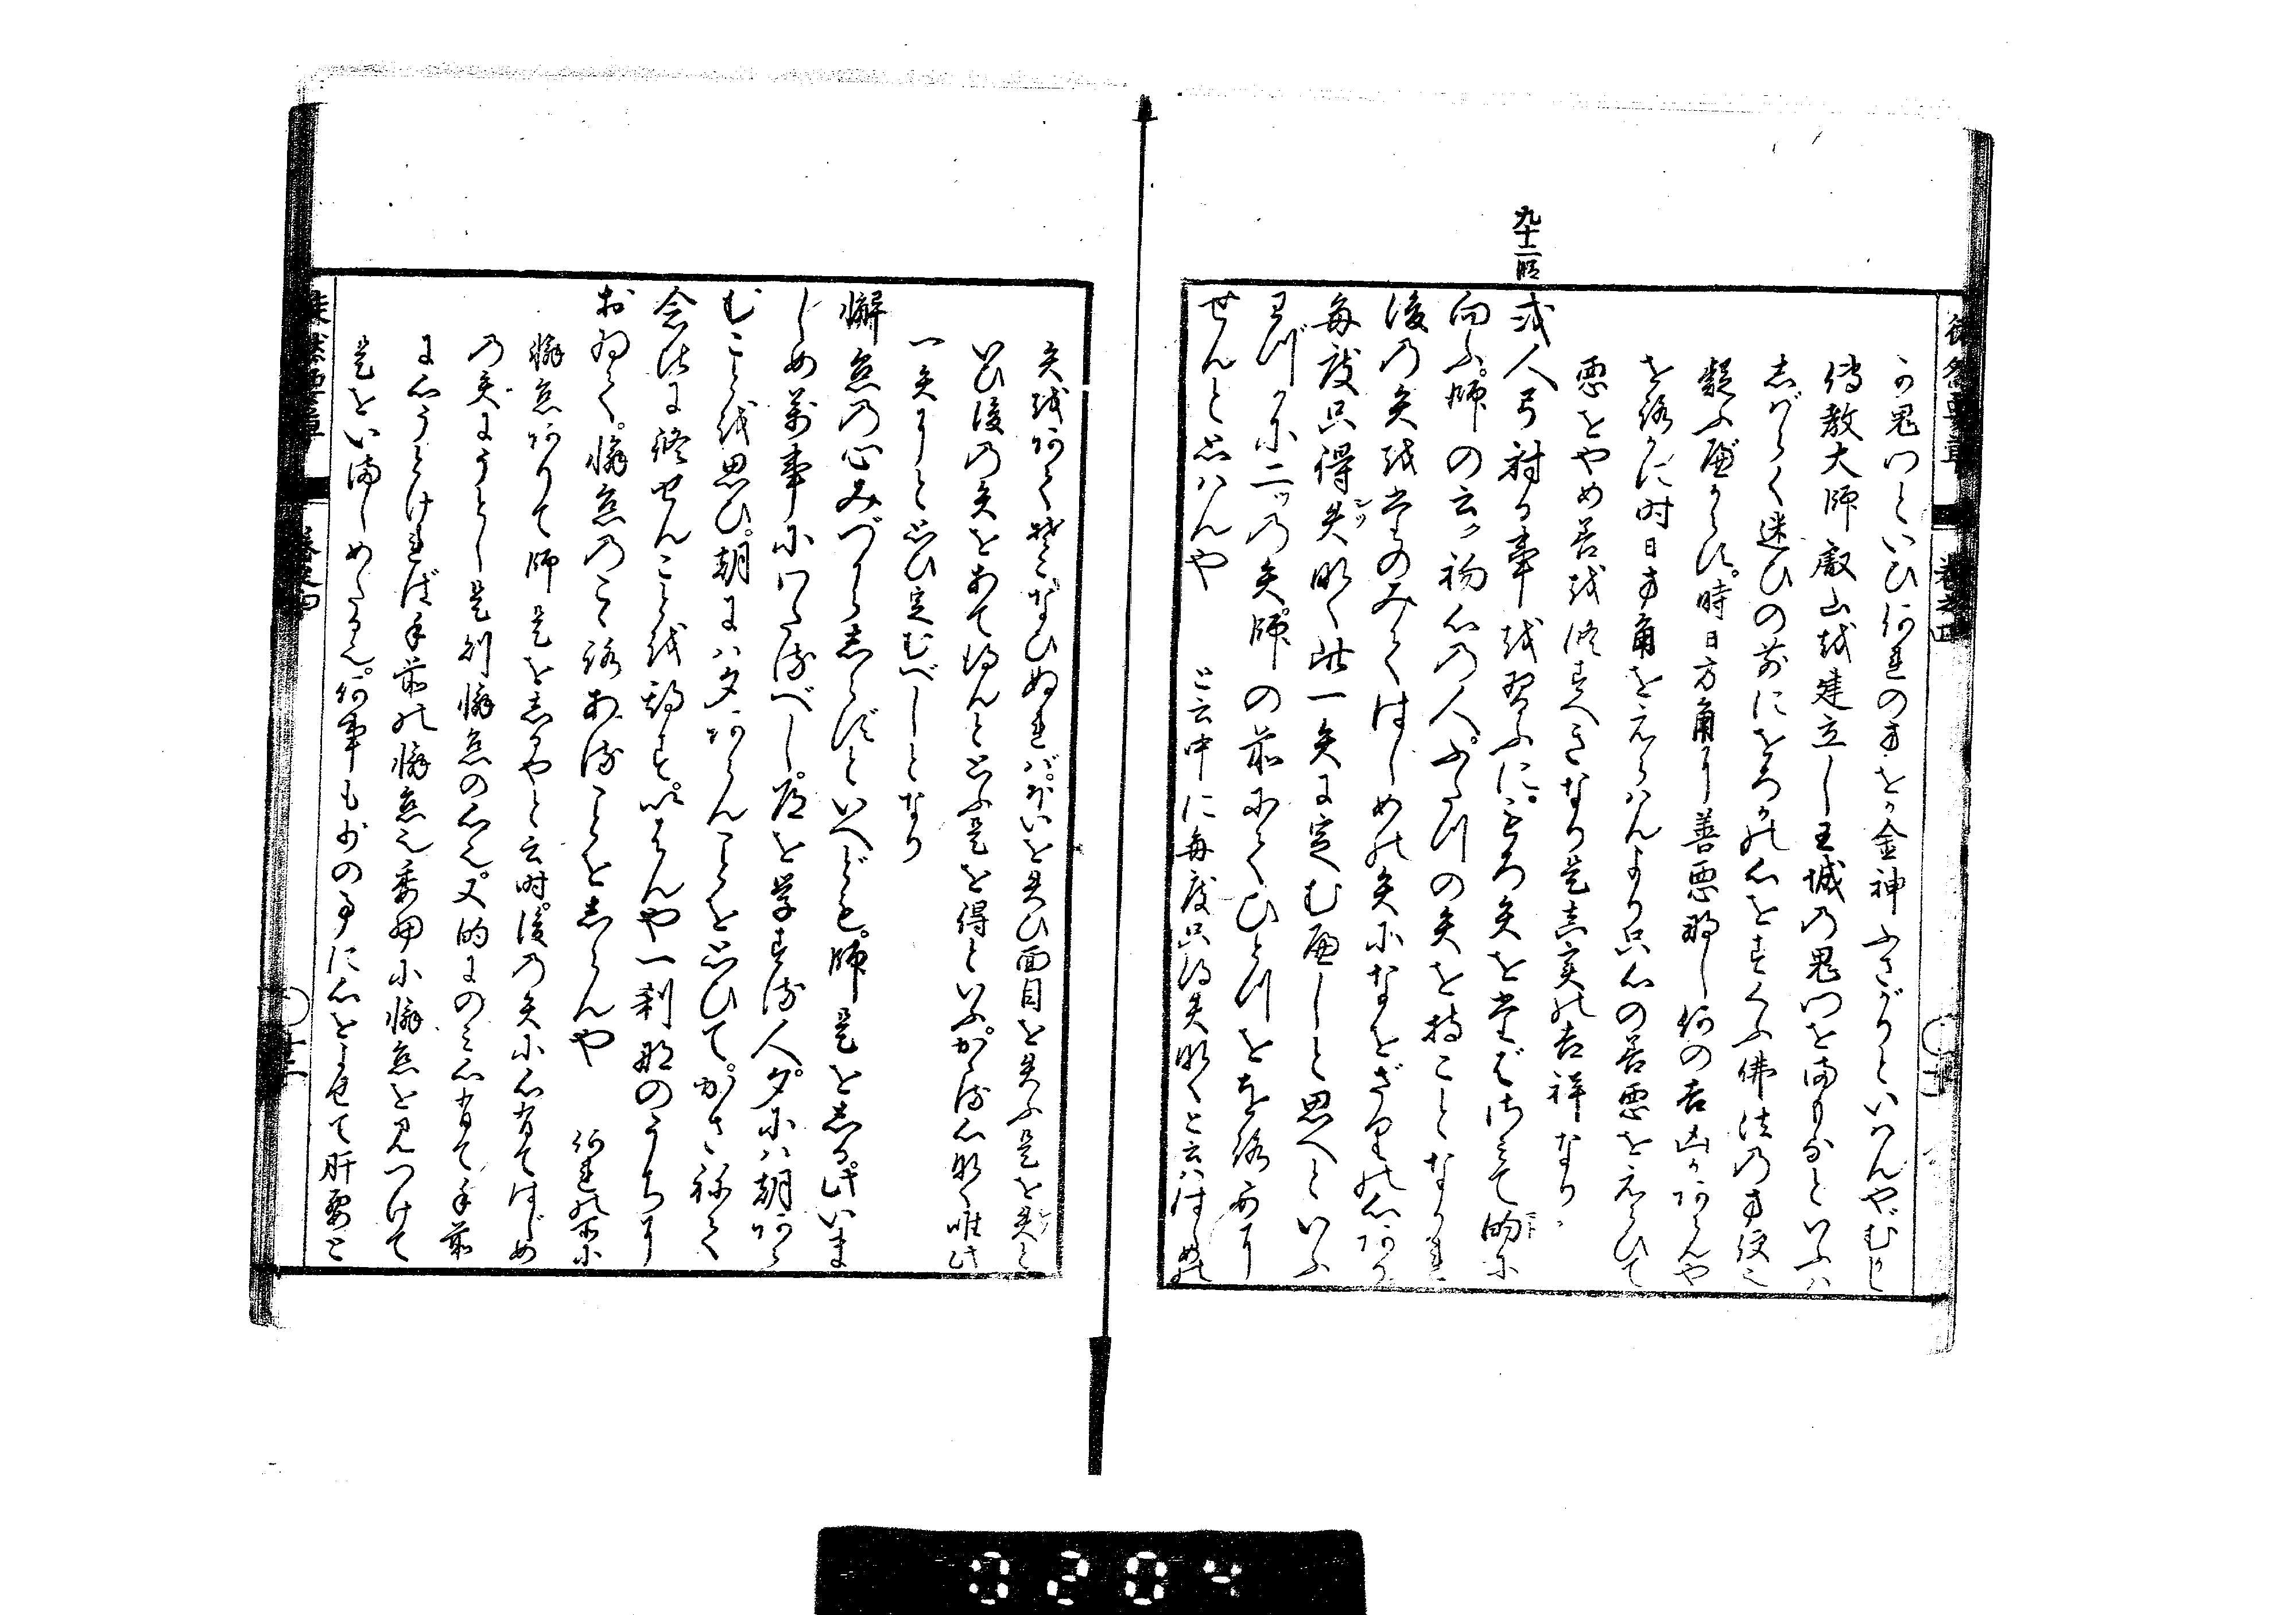 九十二段
か鬼门といひ何れの方をか金神ふさがりといはんやむかし
傳教大師叡山を建立し王城の鬼门をまもるなといふハ
しバらく迷ひの前にをろかの心をすくふ佛法の方便也
疑ふ處からす時日方角に善悪那し何の吉凶かあらんや
をろかに时日方角をえらハんより只心の善悪をえらひて
悪をやめ善を修すへきなり是真実の吉祥なり
或人弓射る事を習ふに。もろ矢を堂ばさミて的に
向ふ。師の云ク初心の人。ふたつの矢を持ことなかれ
後の矢を堂のみてはしめの矢になをざりの心あり
毎度只得失なく此一矢に定む べしと思へといふ
わづかに二ツの矢。師の前にてひとつををろかに
せんと思ハんや
と云中に毎度只得失なくと云ハはしめの
矢をあてそこなひぬれバがいを失ひ面目を失ふ是を失と
いひ後の矢をあて得んと思ふ是を得といふ。かゝる心なく唯此
一矢にと思ひ定むべしとなり
懈怠の心みづからしらずといへども。師是をしる。此いま
しめ萬事にわたるべし。道を学する人。夕には朝あら
むことを思ひ。朝にハ夕あらんことを思ひて。かさねて
念比に修せんことを期す。いはんや一刹那のうちに
おゐて。懈怠のこゝろあることをしらんや
何れの所に
懈怠ありて師是をしるやと云时。後の矢に心有てはじめ
の矢にうとし是則懈怠の心也。又的にのミ心有て手前
に心うとけれど手前の懈怠也委細に懈怠を見つけて
是をいましめたる也。何事も外の事に心をうせて肝要と